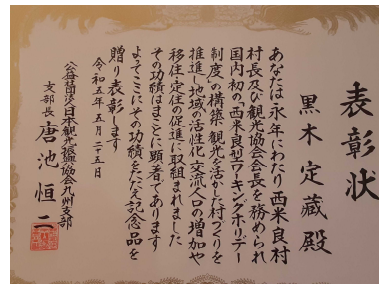 表彰状
黒木定藏殿
あなたは永年にわたり西米良村
村長及び観光協会会長を務められ
国内初の「西米良型ワーキングホリデー
制度」の構築、観光を活かした村づくりを
推進し地域の活性化、交流人口の増加や
移住・定住の促進に取組まれました
その功績はまことに顕著であります
よってここにその功績をたたえ記念品を
贈り表彰します
令和五年五月二十五日
公益社団法人日本観光振興協会九州支部
支部長 唐池恒二